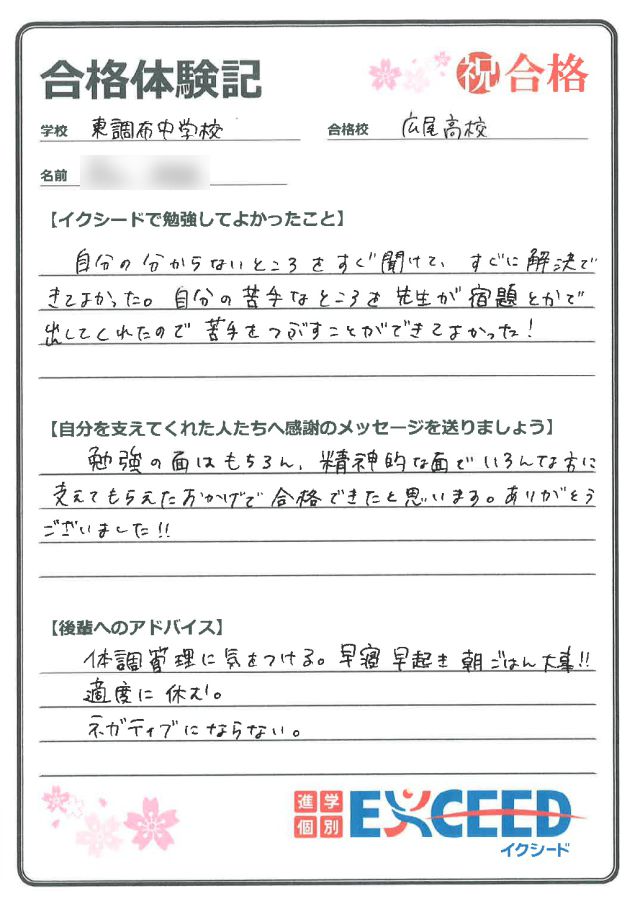 合格体験記
祝 合格
学校 東調布中学校
合格校 広尾高校
名前
【イクシードで勉強してよかったこと】
自分の分からないところをすぐ聞けて、すぐに解決で
きてよかった。自分の苦手なところを先生が宿題とかで
出してくれたので苦手をつぶすことができてよかった！
【自分を支えてくれた人たちへ感謝のメッセージを送りましょう】
勉強の面はもちろん、精神的な面でいろんな方に
支えてもらえたおかげで合格できたと思います。ありがとう
ございました!!
【後輩へのアドバイス】
体調管理に気をつける。早寝早起き朝ごはん大事!!
適度に休む。
ネガティブにならない。
進学
個別
EXCEED
イクシード